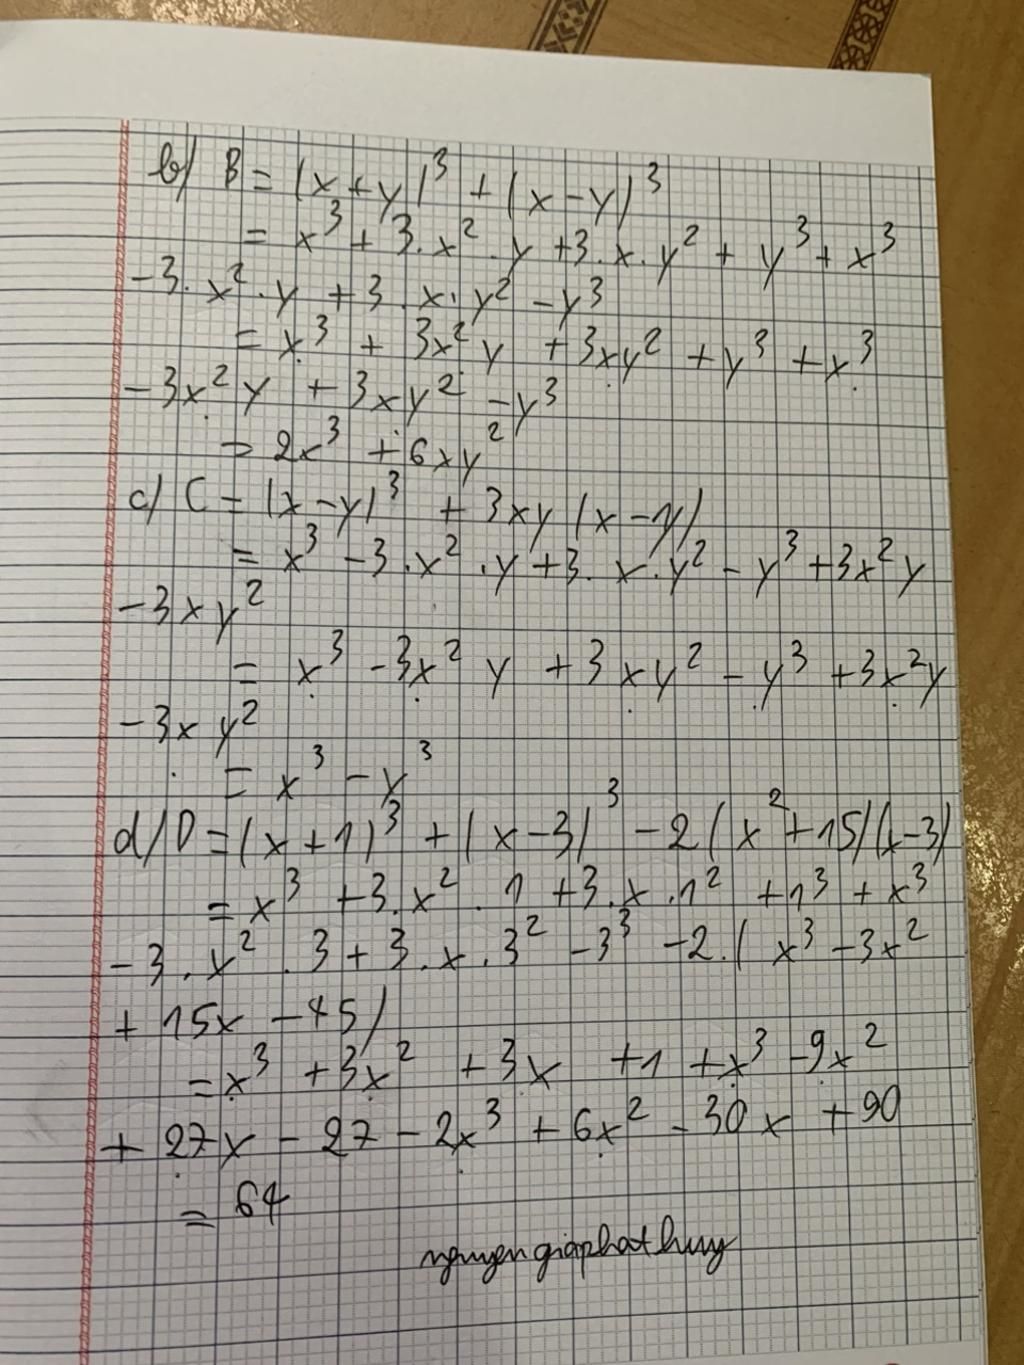 b/ B = (x+y)³ + (x-y)³
= x³ + 3.x².y +3.x.y² + y³ + x³
-3.x².y +3.x.y² -y³
= x³ + 3x²y +3xy² +y³ +x³
-3x²y +3xy² -y³
= 2x³ +6xy²
c/ C = (x-y)³ + 3xy(x-y)
= x³ -3.x².y +3.x.y² - y³ +3x²y
-3xy²
= x³ -3x²y +3xy² - y³ +3x²y
-3xy²
= x³ - y³
d/ D = (x+1)³ + (x-3)³ - 2(x²+15)(x-3)
= x³ +3.x².1 +3.x.1² +1³ + x³
-3.x².3+3.x.3² -3³ -2.(x³-3x²
+ 15x -45)
= x³ +3x² +3x +1 +x³ -9x²
+ 27x - 27 - 2x³ + 6x² - 30x +90
= 64
nguyengiaphathuy